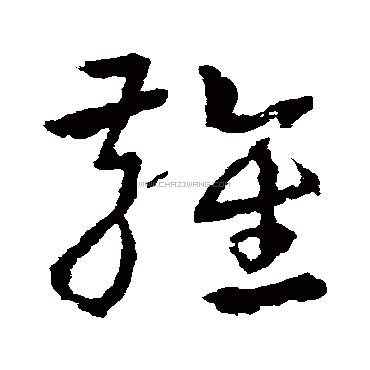 雅
www.chaziwang.com